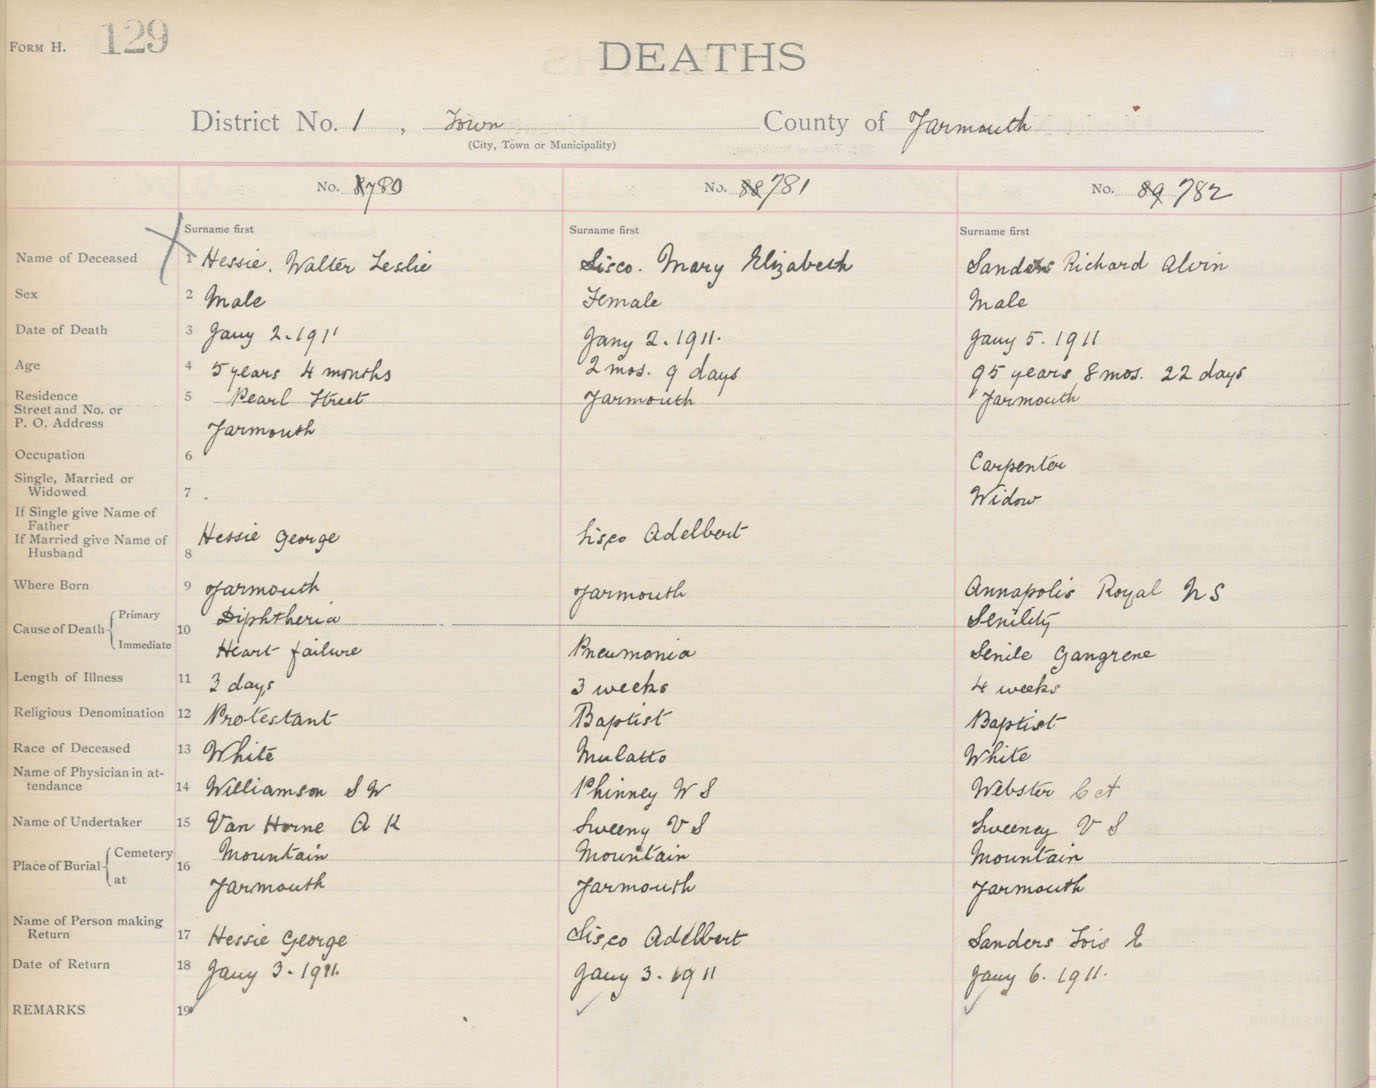 FORM H. 129
DEATHS
District No. 1, Town County of Yarmouth
(City, Town or Municipality)
No. 780 No. 88 781 No. 89 782
Surname first Surname first Surname first
Name of Deceased 1 Hessie. Walter Leslie Sisco. Mary Elizabeth Sanders Richard Alvin
Sex 2 Male Female Male
Date of Death 3 Jany 2. 1911 Jany 2. 1911. Jany 5. 1911
Age 4 5 years 4 months 2 mos. 9 days 95 years 8 mos. 22 days
Residence 5 Pearl Street Yarmouth Yarmouth
Street and No. or
P. O. Address Yarmouth
Occupation 6 Carpenter
Single, Married or
Widowed 7 . Widow
If Single give Name of
Father
If Married give Name of Hessie George Sisco Adelbert
Husband 8
Where Born 9 Yarmouth Yarmouth Annapolis Royal N S
Cause of Death Primary 10 Diphtheria Senility
Immediate Heart failure Pneumonia Senile Gangrene
Length of Illness 11 3 days 3 weeks 4 weeks
Religious Denomination 12 Protestant Baptist Baptist
Race of Deceased 13 White Mulatto White
Name of Physician in at-
tendance 14 Williamson S W Phinney W S Webster C A
Name of Undertaker 15 Van Horne A K Sweeny V S Sweeney V S
Place of Burial Cemetery 16 Mountain Mountain Mountain
at Yarmouth Yarmouth Yarmouth
Name of Person making
Return 17 Hessie George Sisco Adelbert Sanders Lois E
Date of Return 18 Jany 3. 1911. Jany 3. 1911 Jany 6. 1911.
REMARKS 19